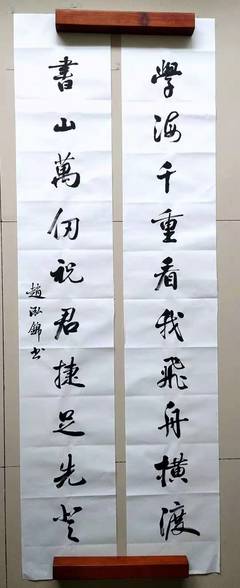 學海千重看我飛舟橫渡
書山萬仞祝君捷足先登
趙泓錦书